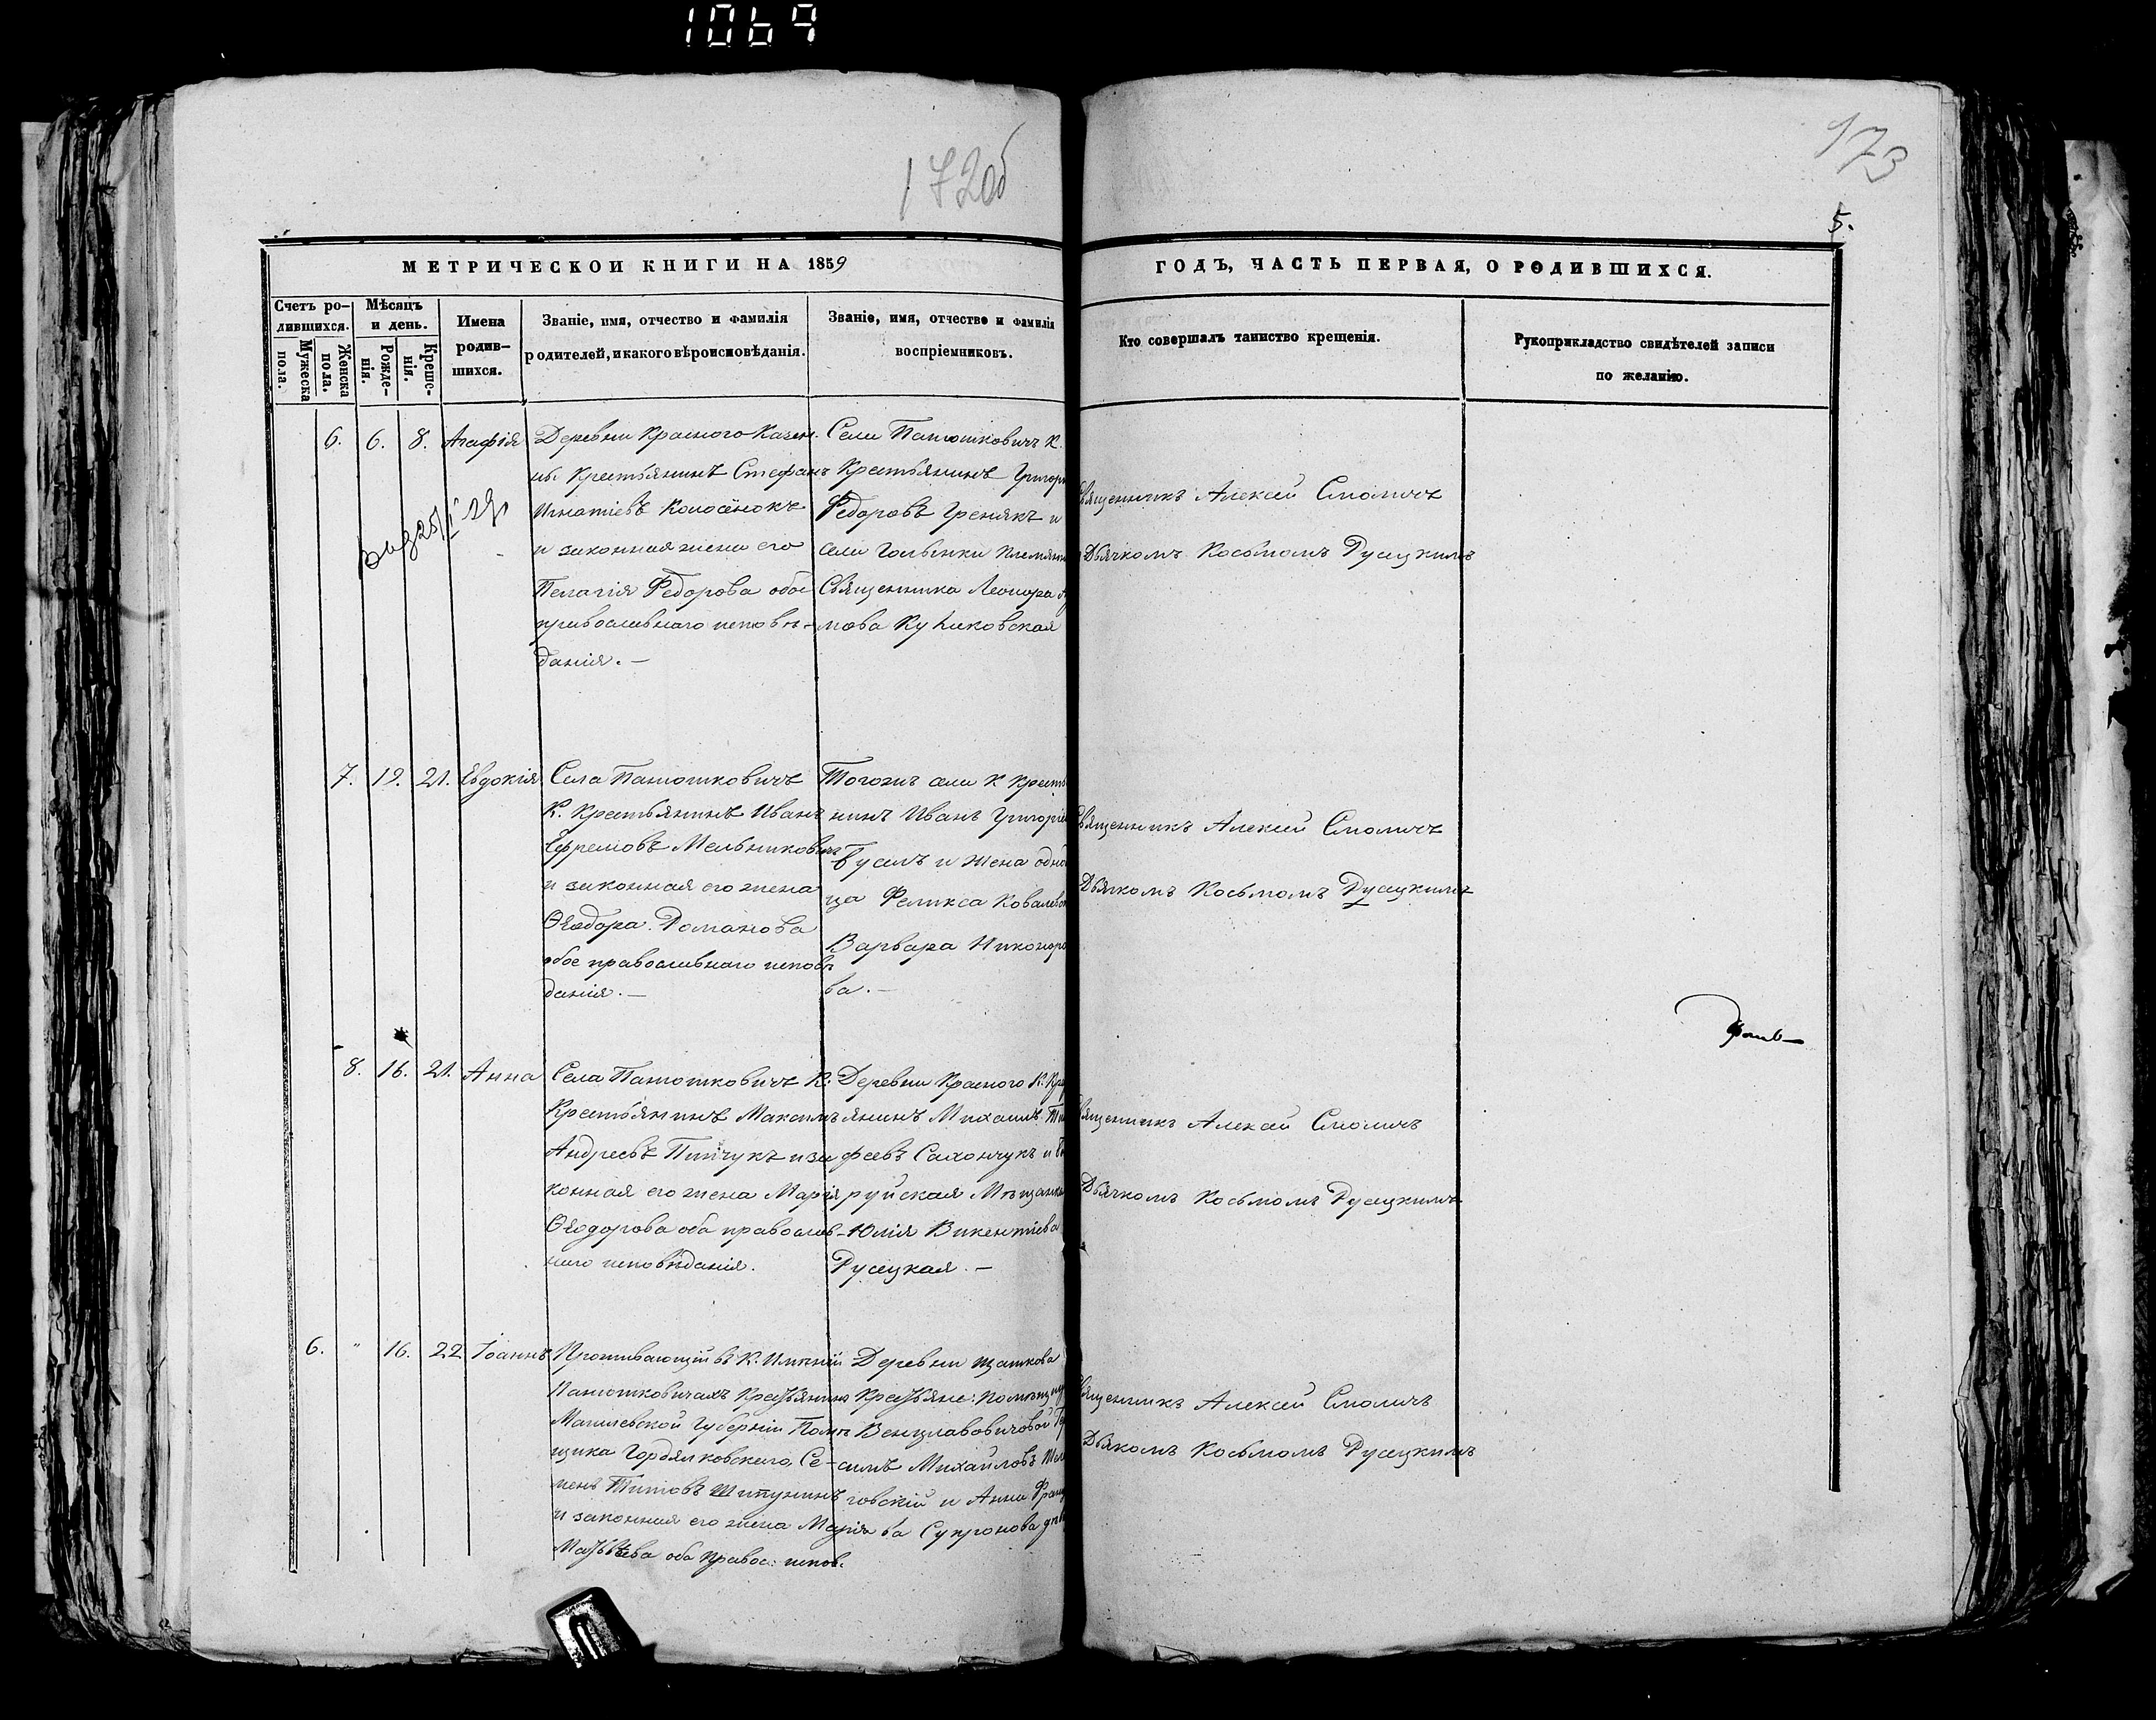 1069
172об
173
5.
МЕТРИЧЕСКОЙ КНИГИ НА 1859
ГОДЪ, ЧАСТЬ ПЕРВАЯ, О РОДИВШИХСЯ.
Счетъ ро-
дившихся.
Мужеска
пола.
Женска
пола.
Мѣсяцъ
и день.
Рожде-
нія.
Креще-
нія.
Имена
родив-
шихся.
Званіе, имя, отчество и фамилія
родителей, и какого вѣроисповѣданія.
Званіе, имя, отчество и фамилія
воспріемниковъ.
Кто совершалъ таинство крещенія.
Рукоприкладство свидѣтелей записи
по желанію.
6. 6. 8. Агафія
Деревни Красного Казен.
ны Крестьянинъ Стефанъ
Игнатіевъ Колосёнокъ
и законная жена его
Пелагія Федорова обое
православнаго исповѣ-
данія.—
Села Панюшковичъ К.
Крестьянинъ Григори
Федоровъ Гренякъ и
села Гольынки племянн
Священника Леонора
мова Куликовская
Священникъ Алексѣй Смоличъ
Дьячкомъ Косьмомъ Русецкимъ
7. 19. 21. Евдокія
Села Панюшковичъ
К. Крестьянинъ Иванъ
Ефремовъ Мельниковичъ
и законная его жена
Ѳеодора Романова
обое православнаго исповѣ
данія.—
Тогожъ села К Кресть
нинъ Иванъ Григоріе
Бусель и жена одно
ца Феликса Ковалев
Варвара Никоноро
ва.—
Священникъ Алексѣй Смоличъ
Дьячкомъ Косьмомъ Русецкимъ
8. 16. 21. Анна
Села Панюшковичъ К.
Крестьянинъ Максимъ
Андреевъ Пинчукъ и за
конная его жена Марія
Ѳеодорова оба православ-
наго исповѣданія.
Деревни Красного К. Кре
янинъ Михаилъ Тим
феевъ Сахончукъ и Боб
руйская Мѣщанка
Юлія Викентіева
Русецкая.—
Священникъ Алексѣй Смоличъ
Дьячкомъ Косьмомъ Русецкимъ
6. " 16. 22 Іоаннъ
Проживающій въ К. Имѣніи
Панюшковичахъ Крестьянинъ
Могилевской Губерніи Помѣ
щика Гордялковскаго, Се-
менъ Титовъ Шипунинъ
и законная его жена Марія
Матвѣева оба Правос: испов.
Деревни Щаткова
Крестьяне: помѣщицы
Венцлавовичовой Гер
симъ Михайловъ
говскій и Анна Фран
ва Супронова
Священникъ Алексѣй Смоличъ
Дьякомъ Косьмомъ Русецкимъ